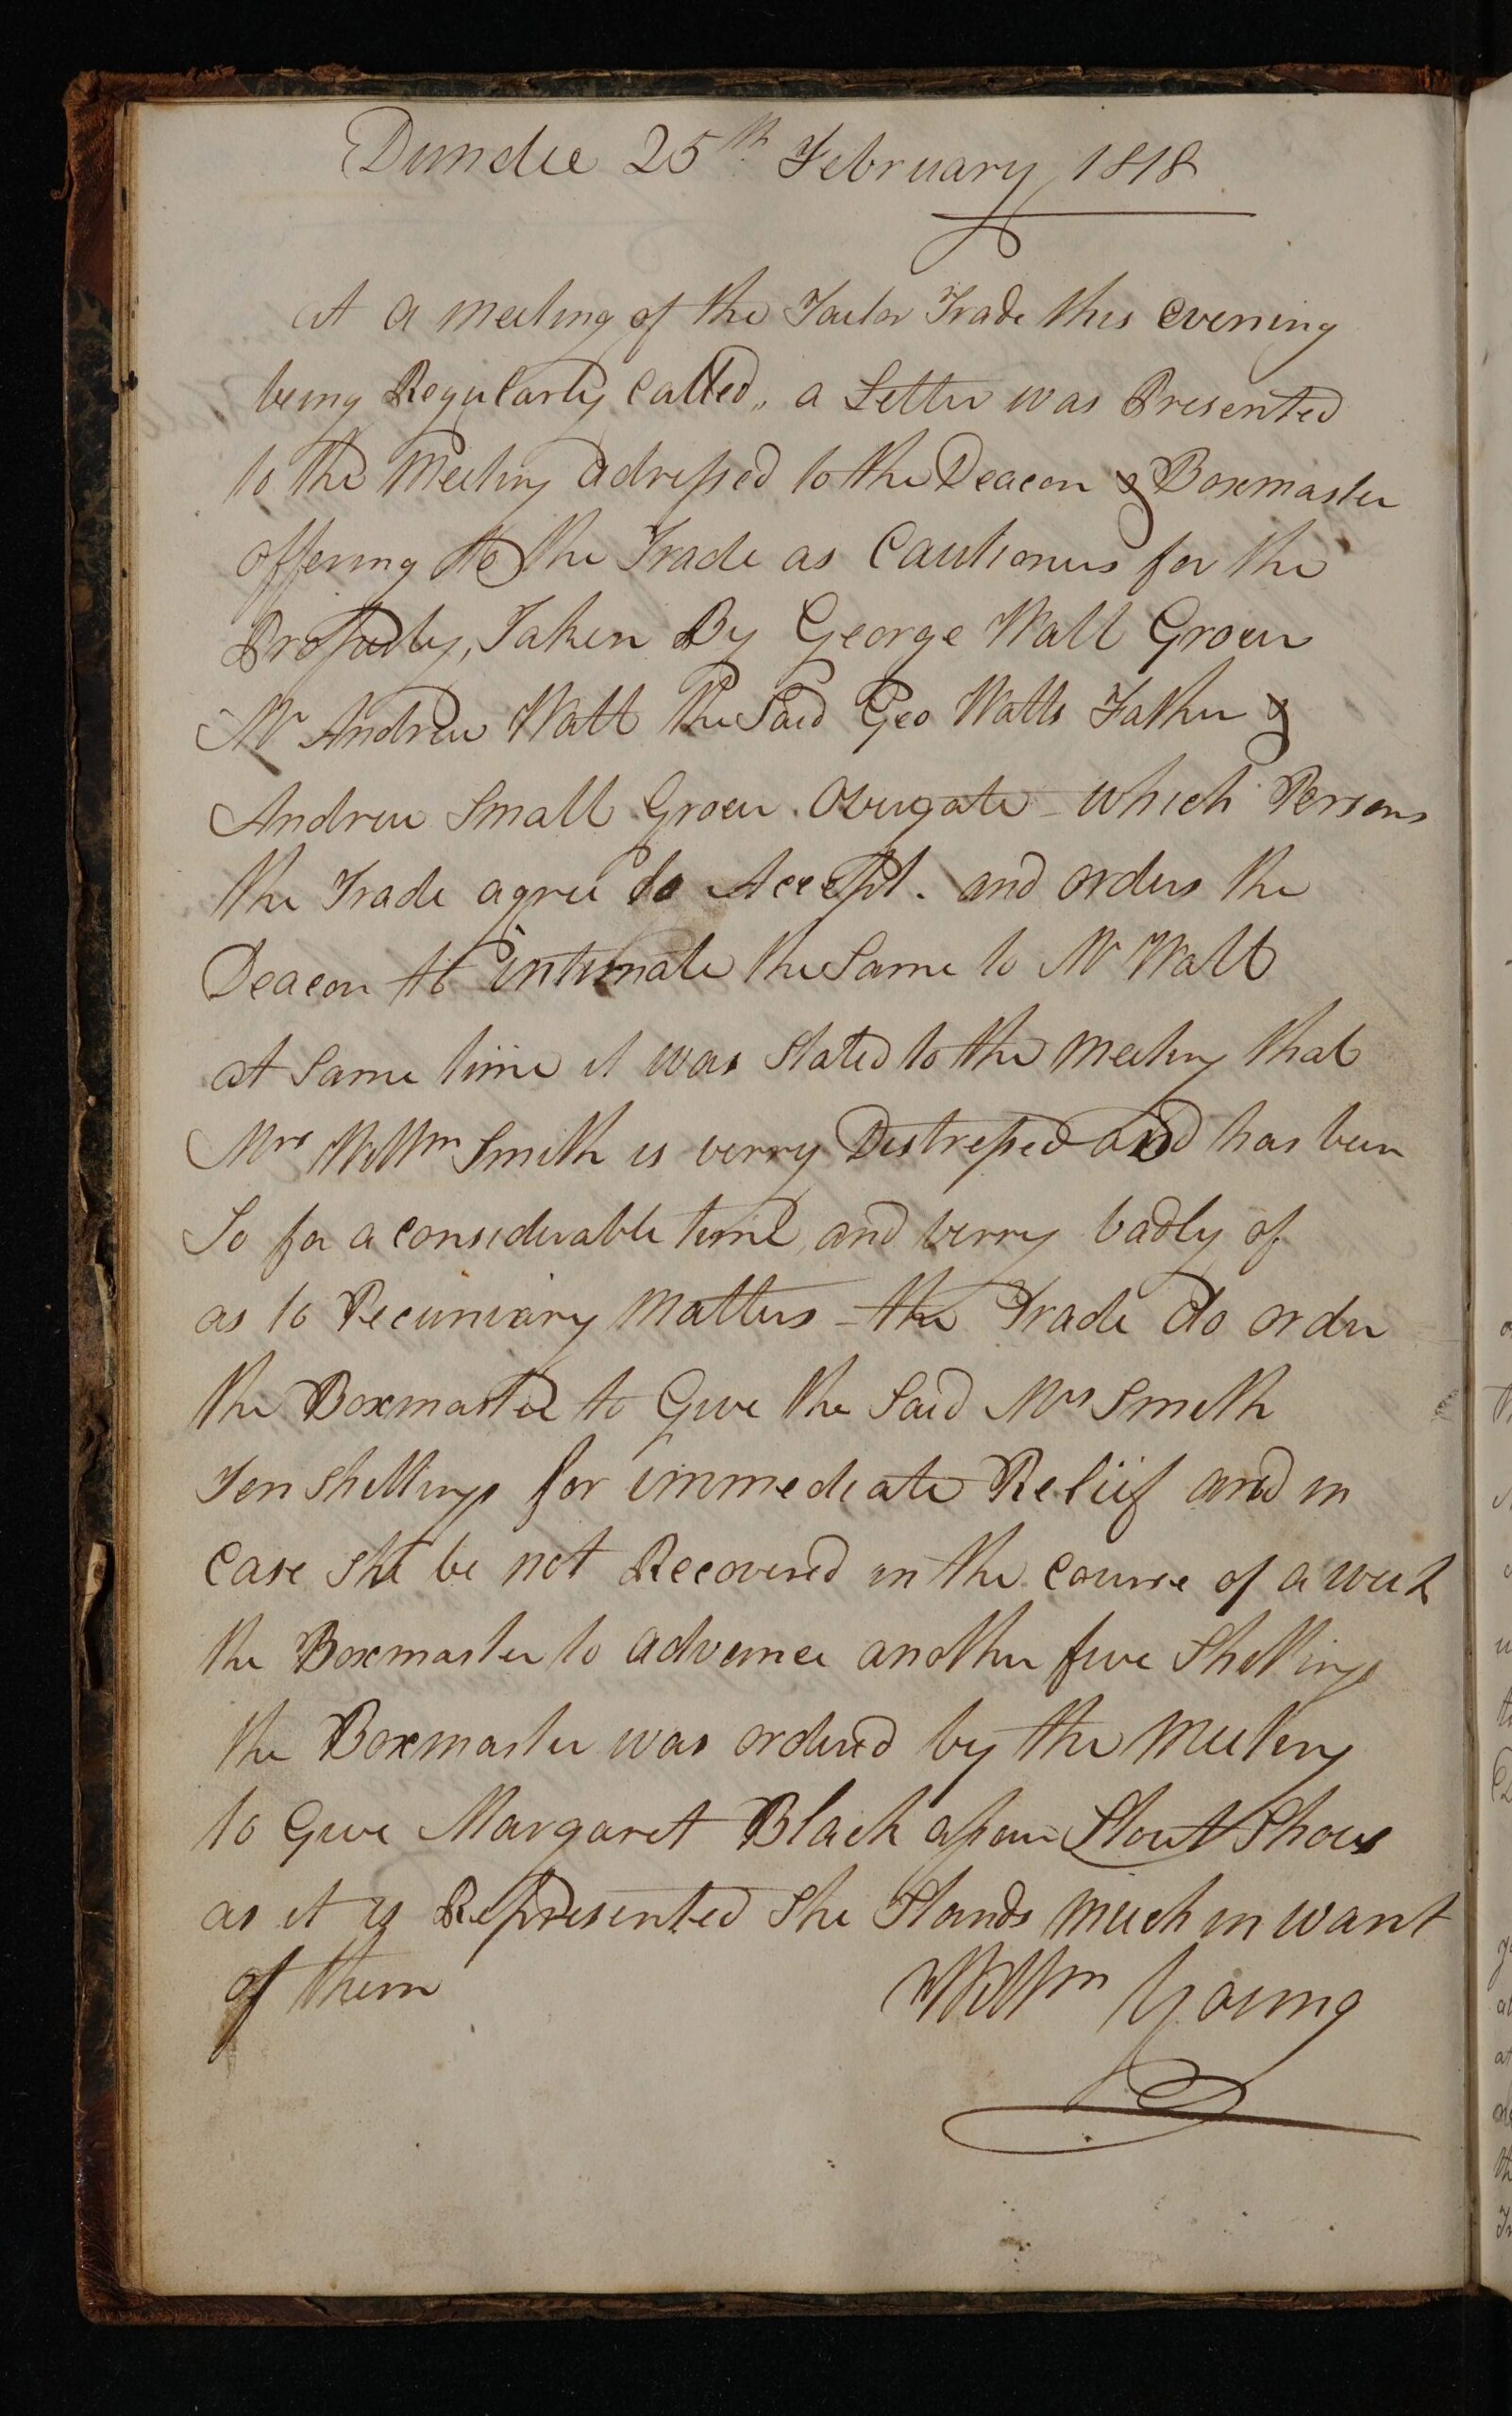 Dundee 25th February 1818
at a meeting of the Tailor Trade this evening
being Regularly Called,, a Letter was Presented
to the Meeting adressed to the Deacon & Boxmaster
offering to the Trade as Cautioners for the
Property, Taken By George Watt Grocer
Mr Andrew Watt the Said Geo Watts Father &
Andrew Small Grocer Overgate – which Persons
the Trade agree to Accept. and orders the
Deacon to intimate the Same to Mr Watt
at Same time it was Stated to the meeting that
Mrs Willm Smith is verry Distressed and has been
So for a considerable time and verry badly of
as to Pecuniary Matters – the Trade do order
the Boxmaster to Give the Said Mrs Smith
Ten Shillings for immediate Relief and in
Case She be not Recovered in the Course of a week
the Boxmaster to advance another five Shillings
the Boxmaster was ordered by the Meeting
to Give Margaret Black a pair Stout Shoes
as it is Represented She Stands much in want
of them Willm Young